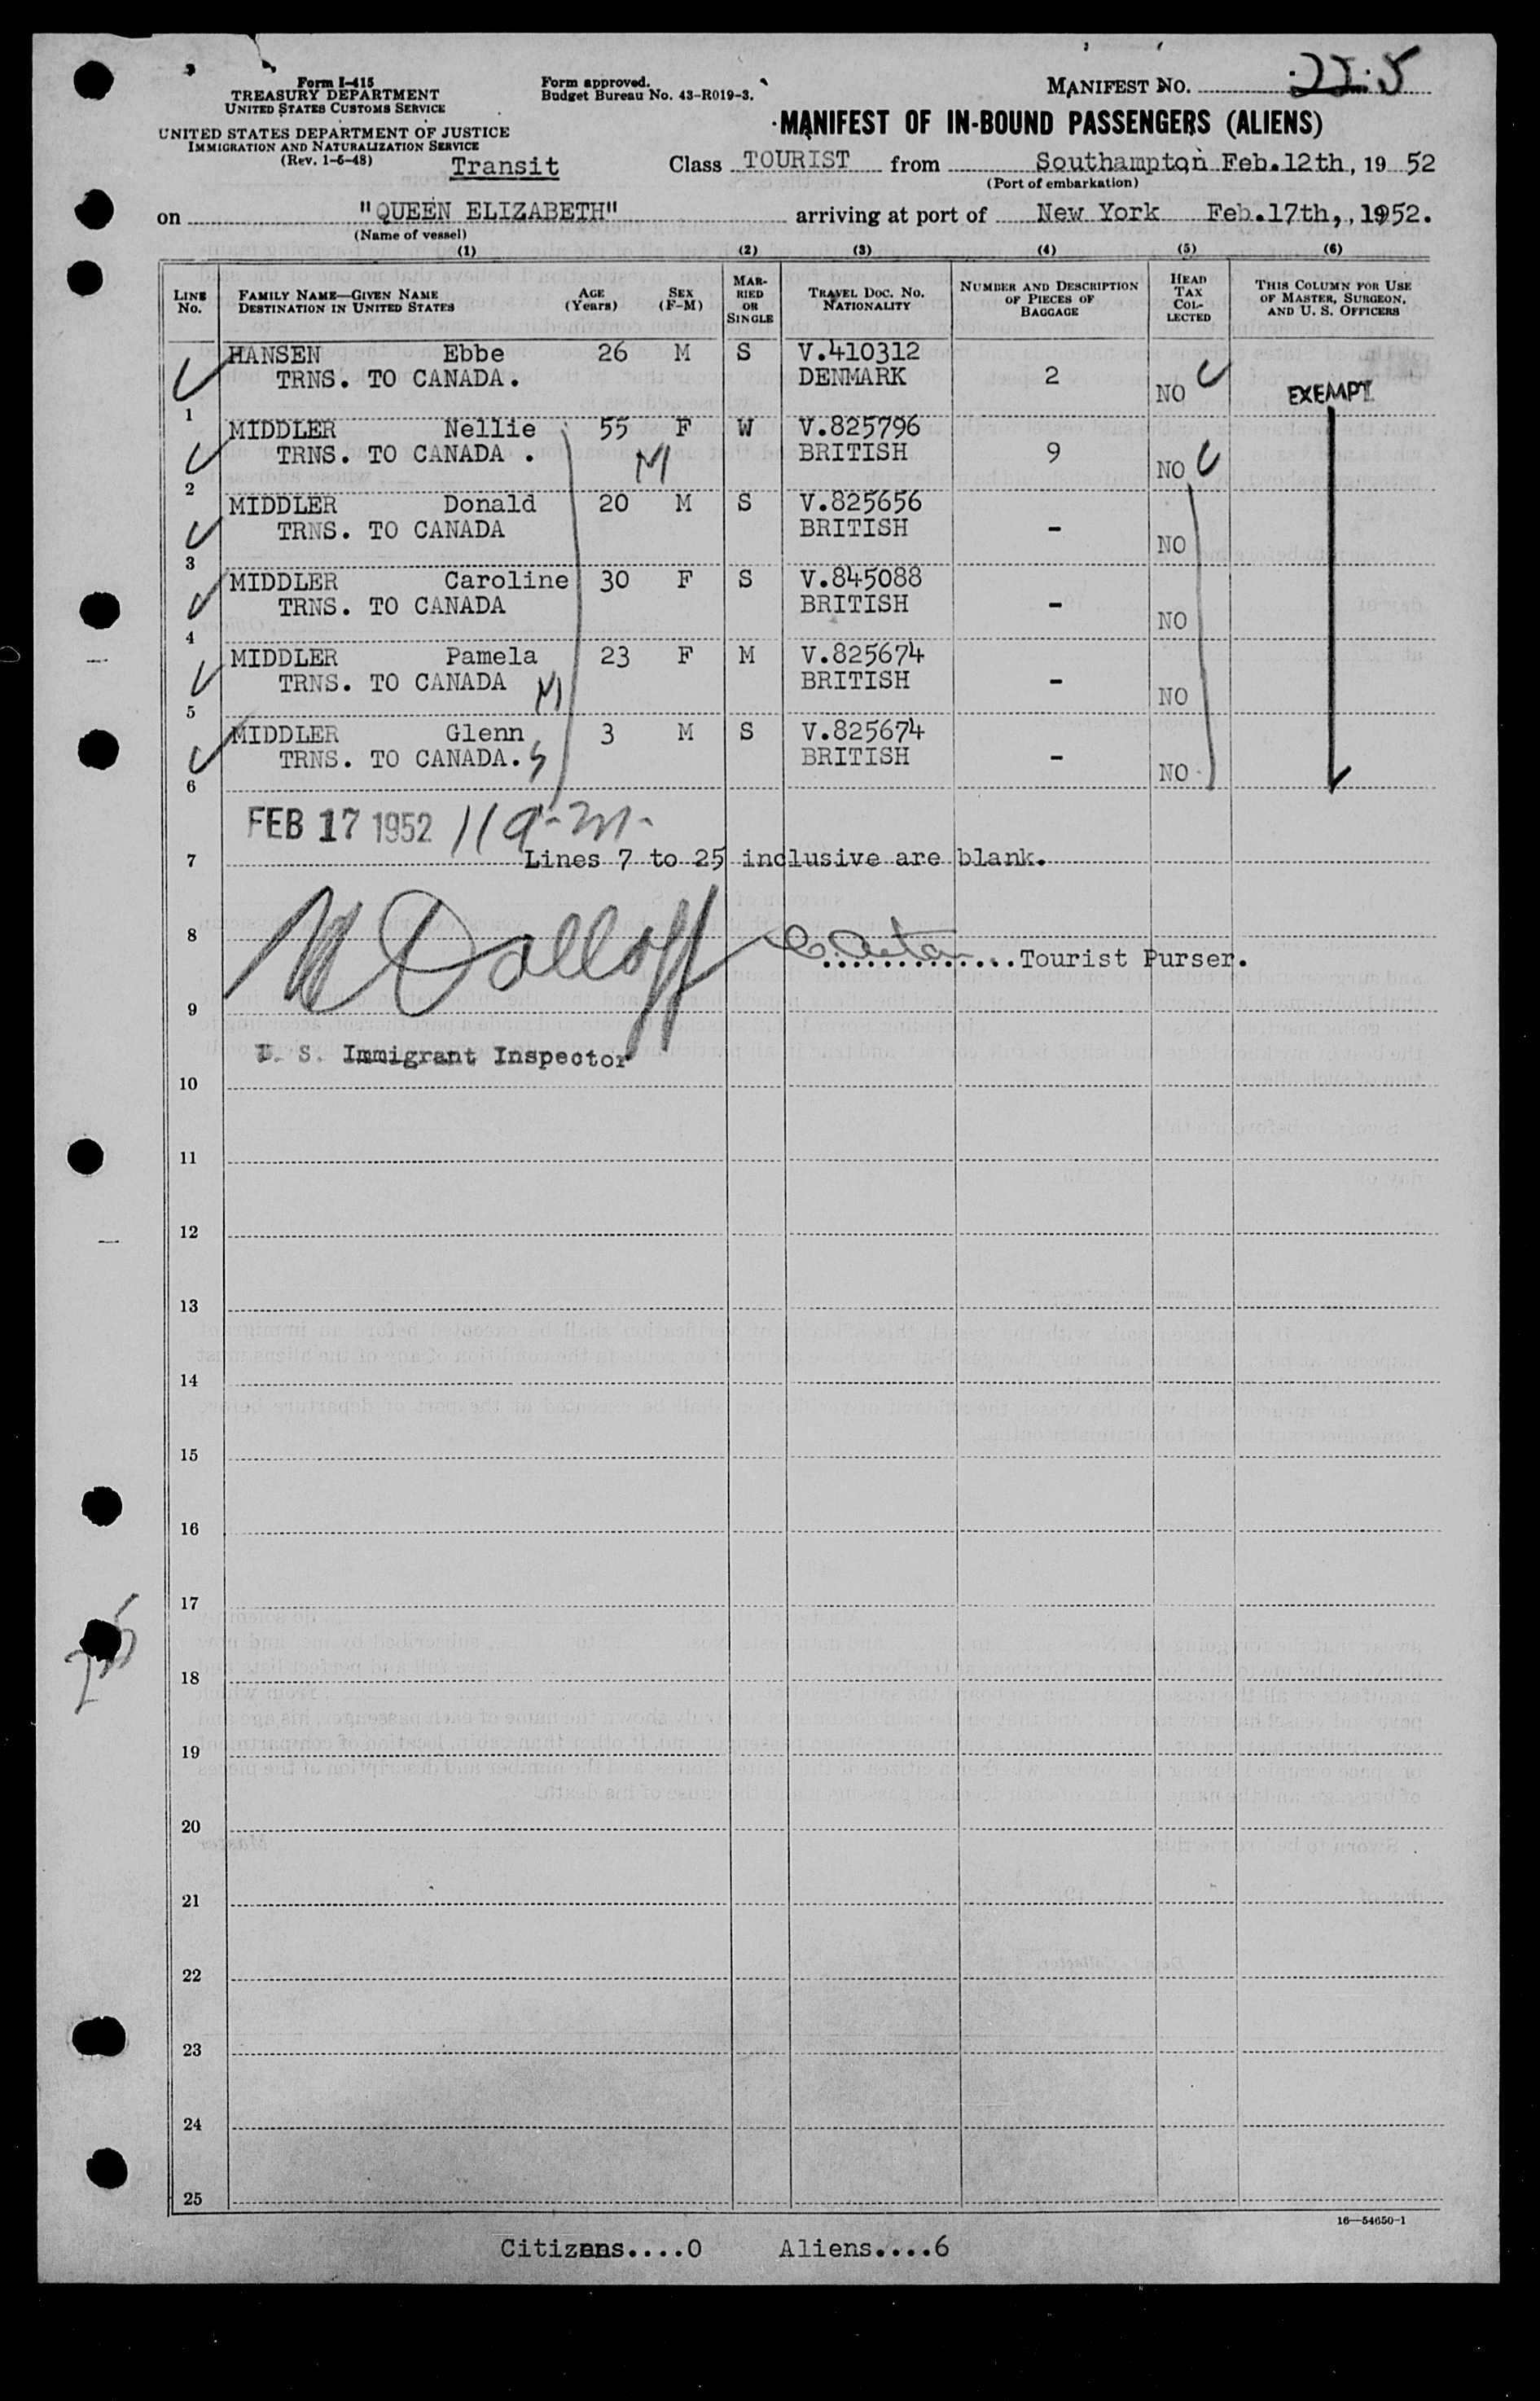 Form I-415
TREASURY DEPARTMENT
UNITED STATES CUSTOMS SERVICE
UNITED STATES DEPARTMENT OF JUSTICE
IMMIGRATION AND NATURALIZATION SERVICE
(Rev. 1-6-48)
Transit
Form approved.
Budget Bureau No. 43-R019-3.
MANIFEST NO. 22.5
MANIFEST OF IN-BOUND PASSENGERS (ALIENS)
Class TOURIST from Southampton Feb.12th, 19 52
(Port of embarkation)
on "QUEEN ELIZABETH" arriving at port of New York Feb.17th,, 1952.
(Name of vessel)
(1) (2) (3) (4) (5) (6)
LINE NO. FAMILY NAME—GIVEN NAME DESTINATION IN UNITED STATES AGE (Years) SEX (F-M) MARRIED OR SINGLE TRAVEL DOC. NO. NATIONALITY NUMBER AND DESCRIPTION OF PIECES OF BAGGAGE HEAD TAX COLLECTED THIS COLUMN FOR USE OF MASTER, SURGEON, AND U. S. OFFICERS
HANSEN Ebbe 26 M S V.410312
TRNS. TO CANADA. DENMARK 2 NO EXEMPT
1
MIDDLER Nellie 55 F W V.825796
TRNS. TO CANADA . M BRITISH 9 NO
2
MIDDLER Donald 20 M S V.825656
TRNS. TO CANADA BRITISH - NO
3
MIDDLER Caroline 30 F S V.845088
TRNS. TO CANADA BRITISH - NO
4
MIDDLER Pamela 23 F M V.825674
TRNS. TO CANADA M BRITISH - NO
5
MIDDLER Glenn 3 M S V.825674
TRNS. TO CANADA. S BRITISH - NO
6
FEB 17 1952 11 a.m.
7 Lines 7 to 25 inclusive are blank.
8
.............Tourist Purser.
9
U. S. Immigrant Inspector
10
11
12
13
14
15
16
17
18
19
20
21
22
23
24
25
16—54650-1
Citizens....0 Aliens....6